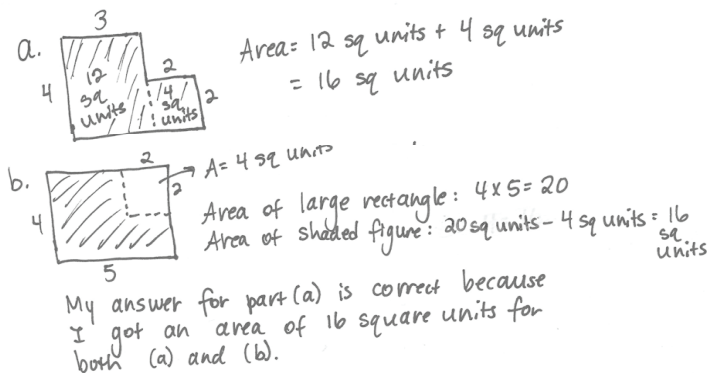 3
a.
4
12
sq
units
2
4
sq
units
2
Area= 12 sq units + 4 sq units
= 16 sq units
b.
2
2
4
5
A= 4 sq units
Area of large rectangle: 4 x 5 = 20
Area of shaded figure: 20 sq units - 4 sq units = 16
sq
units
My answer for part (a) is correct because
I got an area of 16 square units for
both (a) and (b).